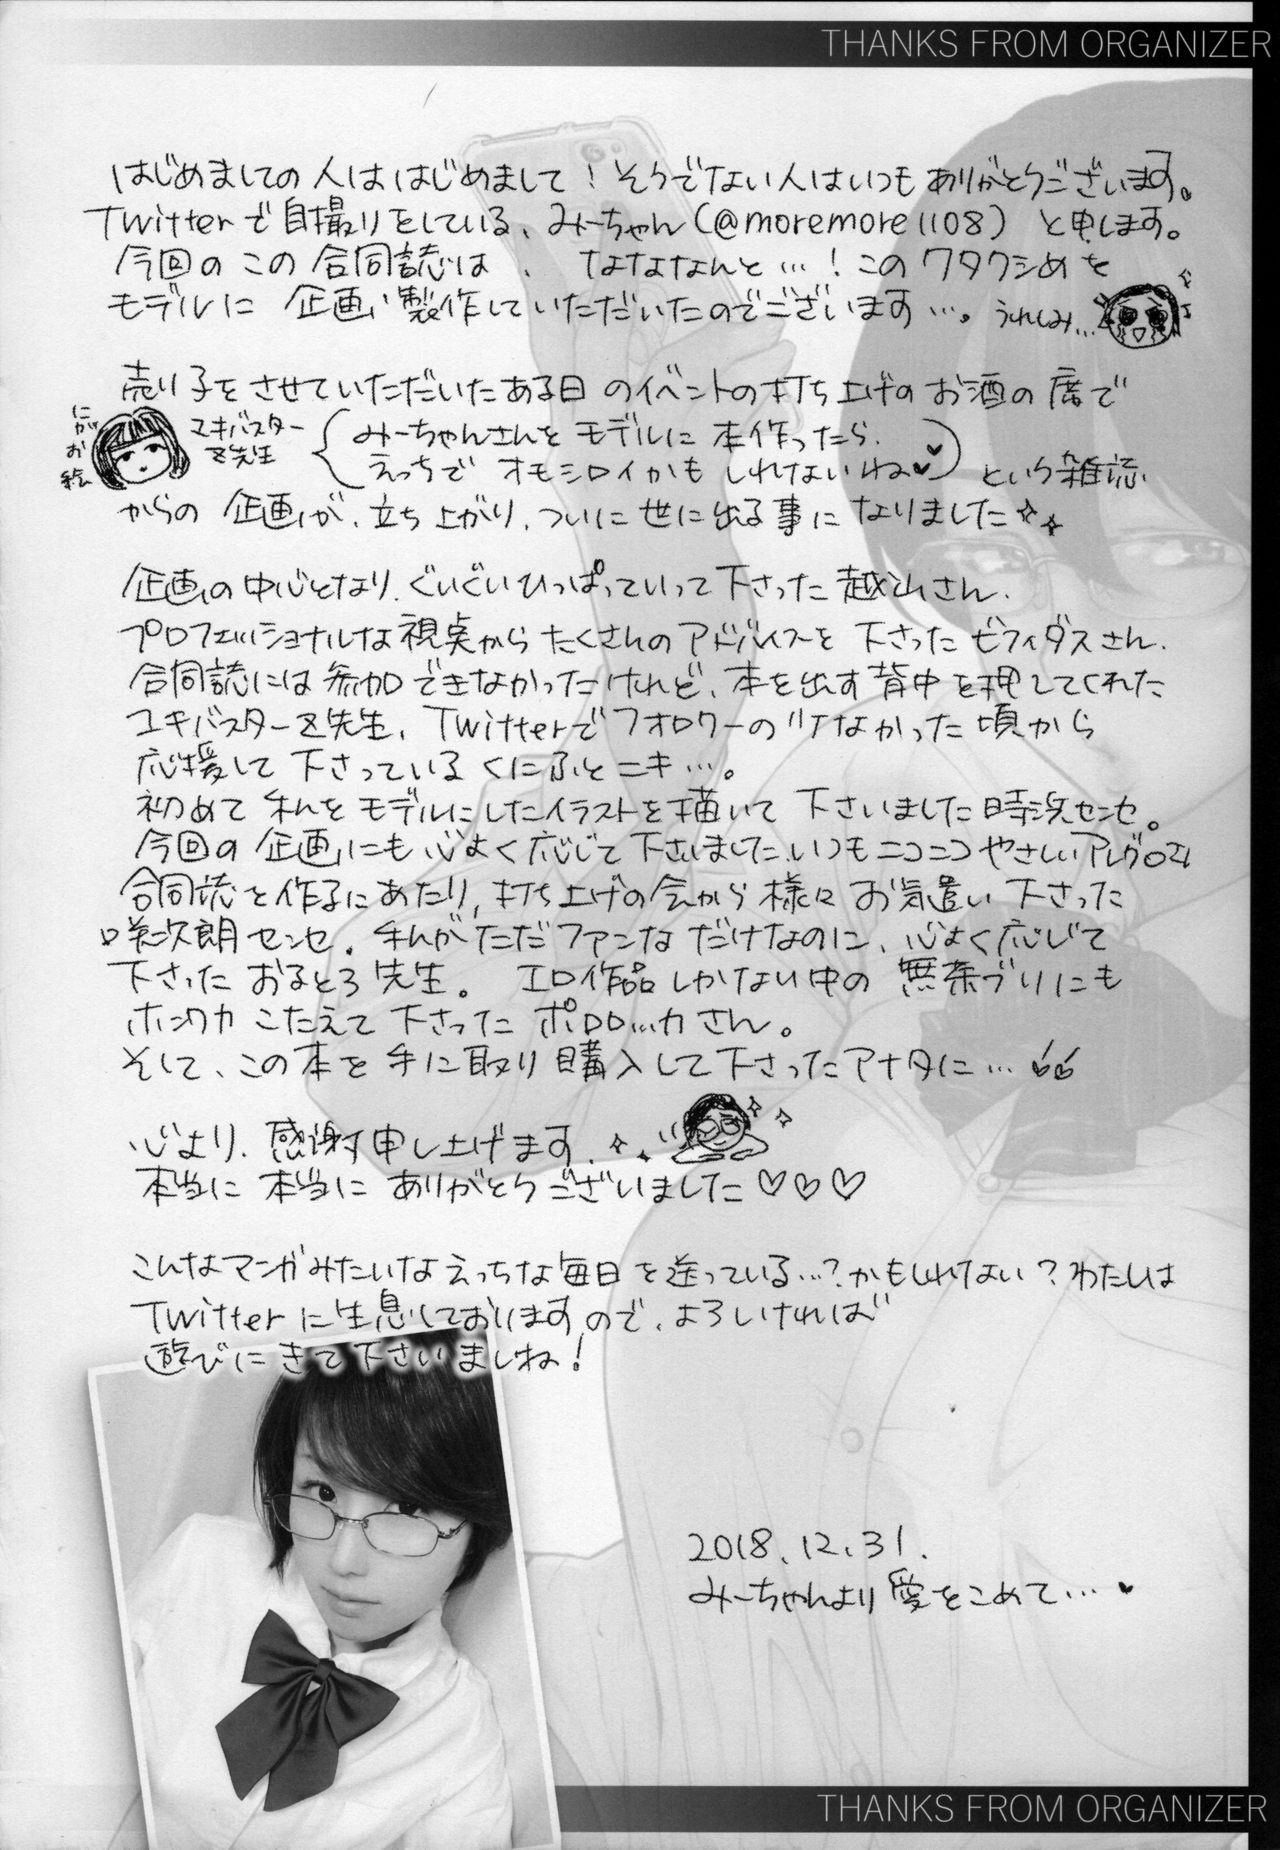 THANKS FROM ORGANIZER
はじめましての人ははじめまして!そうでない人はいつもありがとうございます。
Twitterで自撮りをしている、みーちゃん(@moremore1108)と申します。
今回のこの合同誌は、なななんと…!このワタクシめを
モデルに企画、製作していただいたのでございます…。うれしみ…
売り子をさせていただいたある日のイベントの打ち上げのお酒の席で
にがお絵
マキバスター
Z先生
みーちゃんさんをモデルに本作ったら、
えっちでオモシロイかもしれないね♥♥
という雑談
からの企画が、立ち上がり、ついに世に出る事になりました
企画の中心となり、ぐいぐいひっぱっていって下さった越山さん、
プロフェッショナルな視点からたくさんのアドバイスを下さったビフィダスさん、
合同誌には参加できなかったけれど、本を出す背中を押してくれた
ユキバスターZ先生、Twitterでフォロワーの少なかった頃から
応援して下さっているくにふとニキ…。
初めて私をモデルにしたイラストを描いて下さいました時浜センセ。
今回の企画にも心よく応じて下さいました、いつもニコニコやさしいアレグロさん
合同誌を作るにあたり、打ち上げの会から様々お気遣い下さった
咲次朗センセ。私がただファンなだけなのに、心よく応じて
下さったおるとろ先生。エロ作品しかない中の無茶ブリにも
ホンワカこたえて下さったポロロッカさん。
そして、この本を手に取り購入して下さったアナタに…
心より、感謝申し上げます。
本当に本当にありがとうございました♡♡♡
こんなマンガみたいなえっちな毎日を送っている…?かもしれない?わたしは
Twitterに生息しておりますので、よろしければ
遊びにきて下さいましね!
2018.12.31.
みーちゃんより愛をこめて…♥
THANKS FROM ORGANIZER